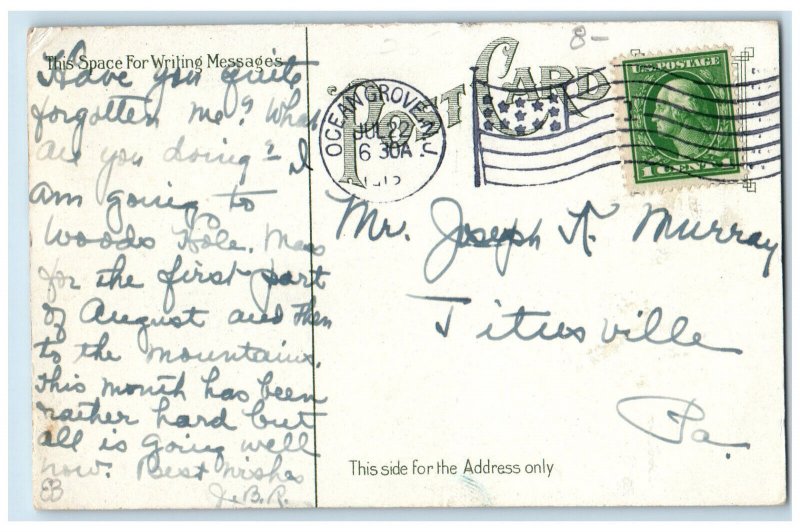 This Space For Writing Messages
Have you quite
forgotten me? What
are you doing? I
am going to
Woods Hole. Mass
for the first part
of August and then
to the mountains.
This month has been
rather hard but
all is going well
now. Best wishes
J. B. R.
EB
8-
POST CARD
OCEAN GROVE, N.J.
JUL 22
6 30A
U.S. POSTAGE
1 CENT 1
Mr. Joseph K. Murray
Titusville
Pa.
This side for the Address only